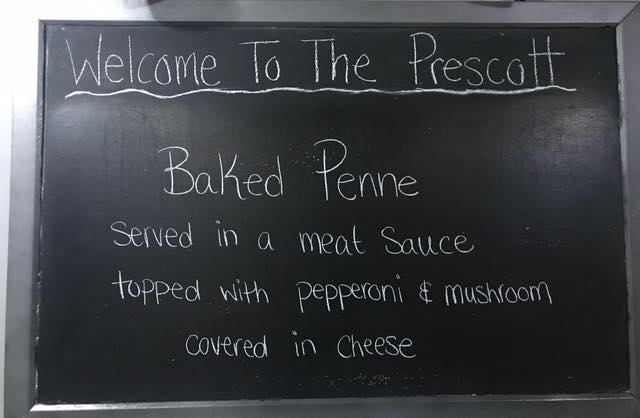 Welcome To The Prescott
Baked Penne
served in a meat sauce
topped with pepperoni & mushroom
covered in cheese